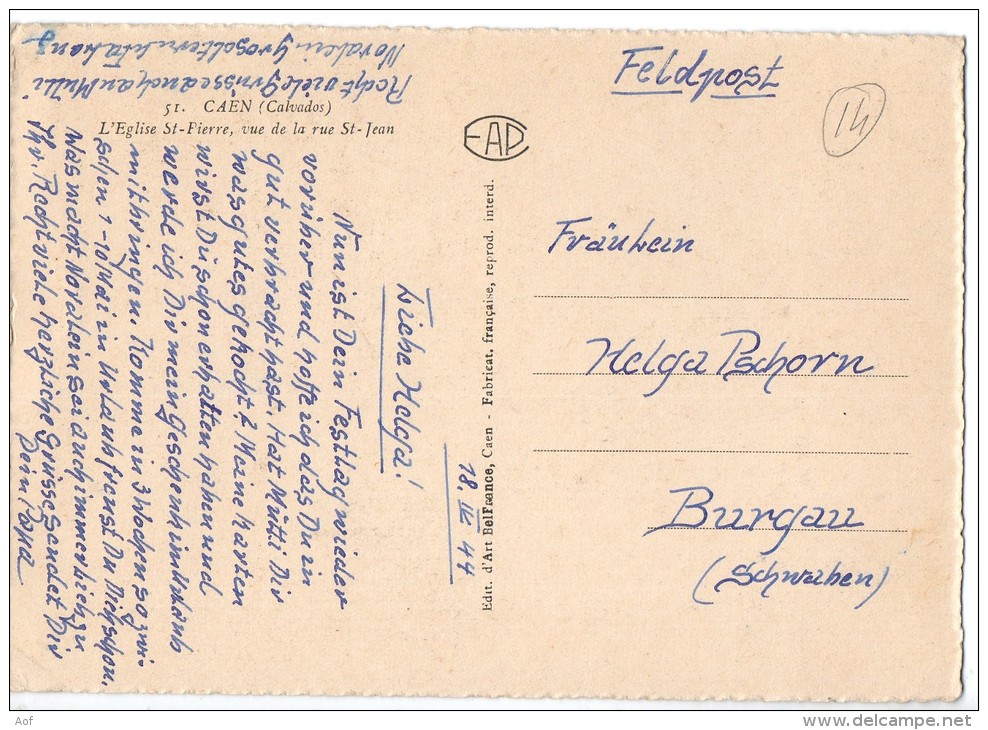 Feldpost
14
51. CAEN (Calvados)
L'Eglise St-Pierre, vue de la rue St-Jean
EAP
Edit. d'Art BelFrance, Caen - Fabricat. française, reprod. interd.
Fräulein
Helga Pschorn
Burgau
(Schwaben)
18. IV. 44
Liebe Helga!
Nun ist Dein Festtag wieder
vorüber und hoffe ich das Du in
gut verbracht hast. Hat Mutti Dir
was gutes gekocht? Meine Karten
wirst Du schon erhalten haben und
werde ich Dir mein Geschenk im Urlaub
mitbringen. Komme in 3 Wochen so zwi-
schen 7-10 Mai in Urlaub freust Du Dich schon.
Was macht Noralein sei auch immer lieb zu
Ihr. Recht viele herzliche Grüsse sendet Dir
Dein Papa
Recht viele Grüsse auch an Mutti
Noralein